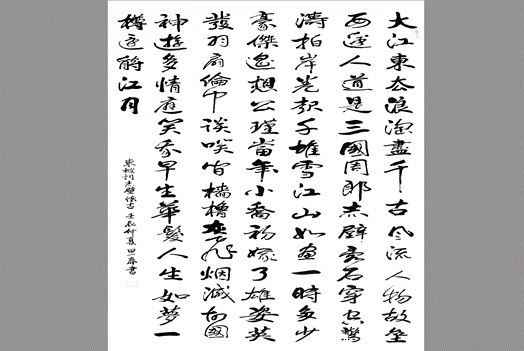 大江東去浪淘盡千古風流人物故壘
西邊人道是三國周郎赤壁亂石穿空驚
濤拍岸卷起千堆雪江山如畫一時多少
豪傑遙想公瑾當年小喬初嫁了雄姿英
發羽扇綸巾談笑間檣櫓灰飛烟滅故國
神遊多情應笑我早生華髮人生如夢一
樽還酹江月
東坡詞赤壁懷古 壬辰仲夏 書